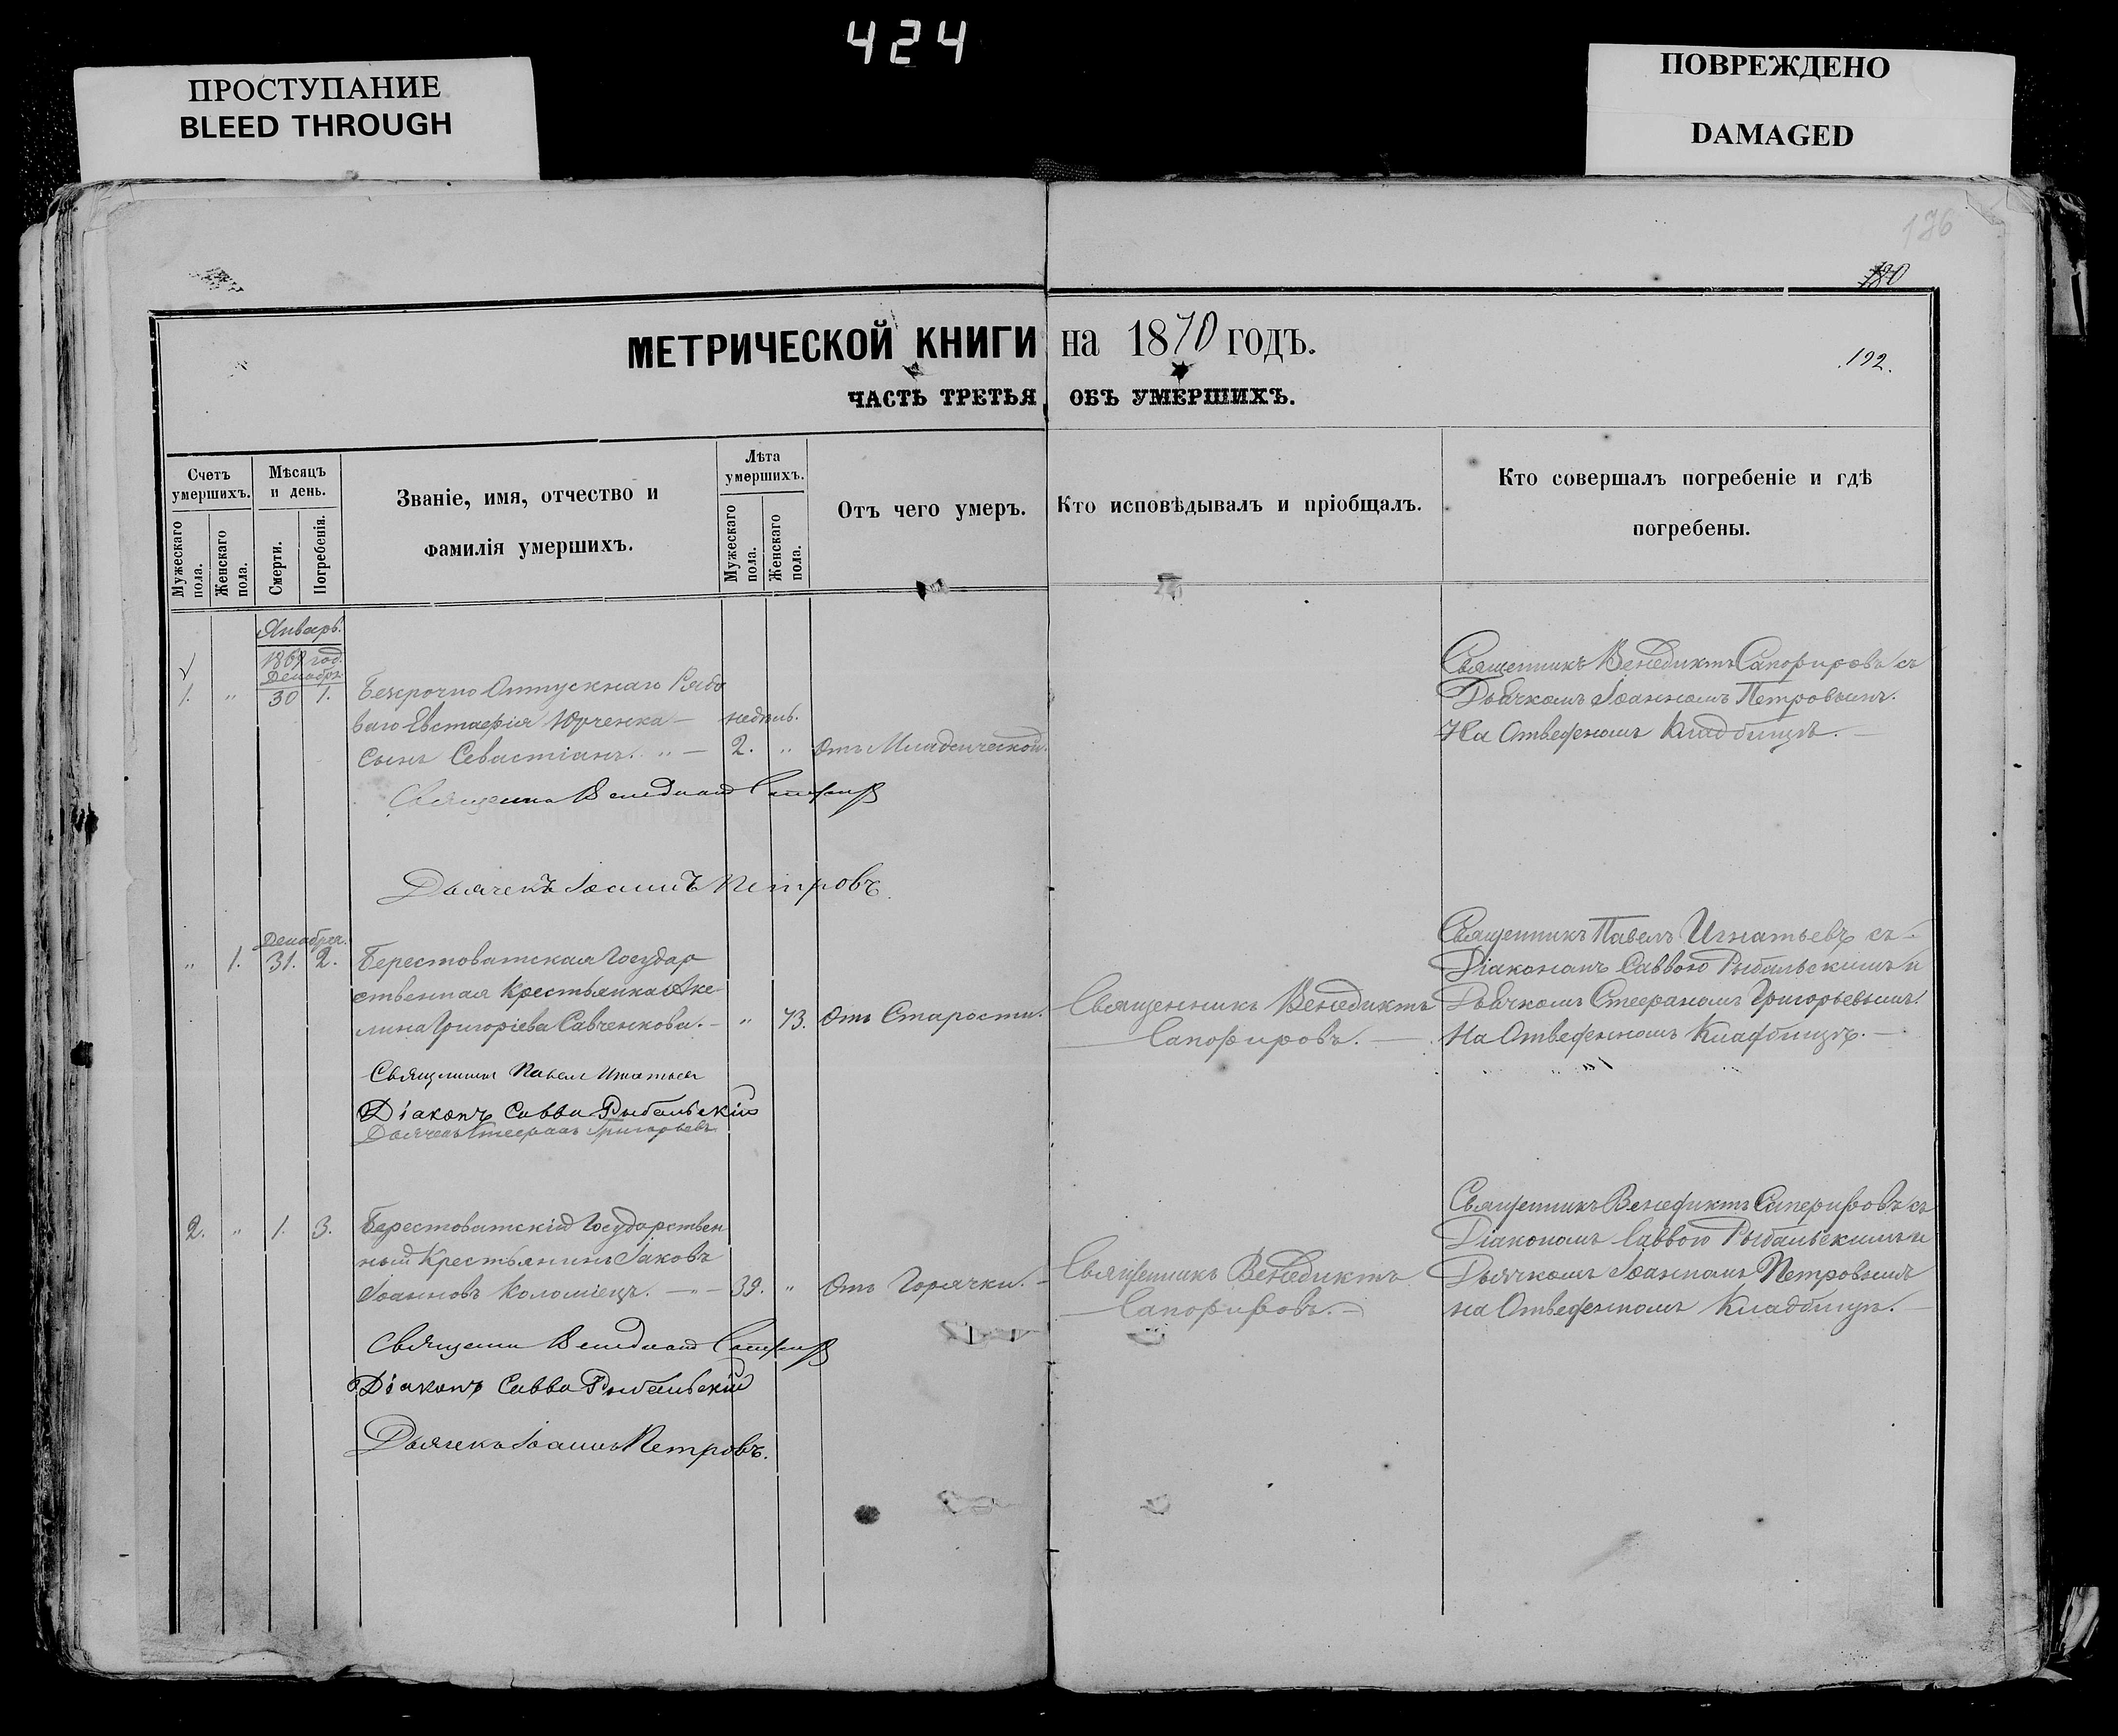 424
ПРОСТУПАНИЕ
BLEED THROUGH
ПОВРЕЖДЕНО
DAMAGED
176
180
МЕТРИЧЕСКОЙ КНИГИ на 1870 годъ.
192.
ЧАСТЬ ТРЕТЬЯ ОБЪ УМЕРШИХЪ.
Счетъ умершихъ.
Мужескаго пола.
Женскаго пола.
Мѣсяцъ и день.
Смерти.
Погребенія.
Званіе, имя, отчество и
фамилія умершихъ.
Лѣта умершихъ.
Мужескаго пола.
Женскаго пола.
Отъ чего умеръ.
Кто исповѣдывалъ и пріобщалъ.
Кто совершалъ погребеніе и гдѣ
погребены.
Январь.
1869 год.
Декабря
1. " 30 1. Безсрочно Отпускнаго Рядо
ваго Евстафія Юрченка — недѣль.
сынъ Севастіанъ. " — 2. " Отъ Младенческой.
Священникъ Венедиктъ Сапфировъ съ
Дьячкомъ Іоанномъ Петровымъ.
На Отведеномъ Кладбищѣ. —
Дьячекъ Іоаннъ Петровъ.
Декабря.
" 1. 31. 2. Берестоватская Государ
ственная Крестьянка Аке
лина Григоріева Савченкова. — " 73. Отъ Старости.
Священникъ Венедиктъ
Сапфировъ. —
Священникъ Павелъ Игнатьевъ съ —
Діакономъ Саввою Рыбальскимъ и
Дьячкомъ Стефаномъ Григорьевымъ.
На Отведенномъ Кладбищѣ. —
Священникъ Павелъ Игнатьевъ
Діаконъ Савва Рыбальскій
Дьячекъ Стефанъ Григорьевъ
2. " 1. 3. Берестоватскій Государствен
ный Крестьянинъ Іаковъ
Іоанновъ Коломіецъ. — " — 39. " Отъ Горячки. —
Священникъ Венедиктъ
Сапфировъ. —
Священникъ Венедиктъ Сапфировъ съ
Діакономъ Саввою Рыбальскимъ и
Дьячкомъ Іоанномъ Петровымъ
на Отведенномъ Кладбищѣ. —
Діаконъ Савва Рыбальскій
Дьячекъ Іоаннъ Петровъ.